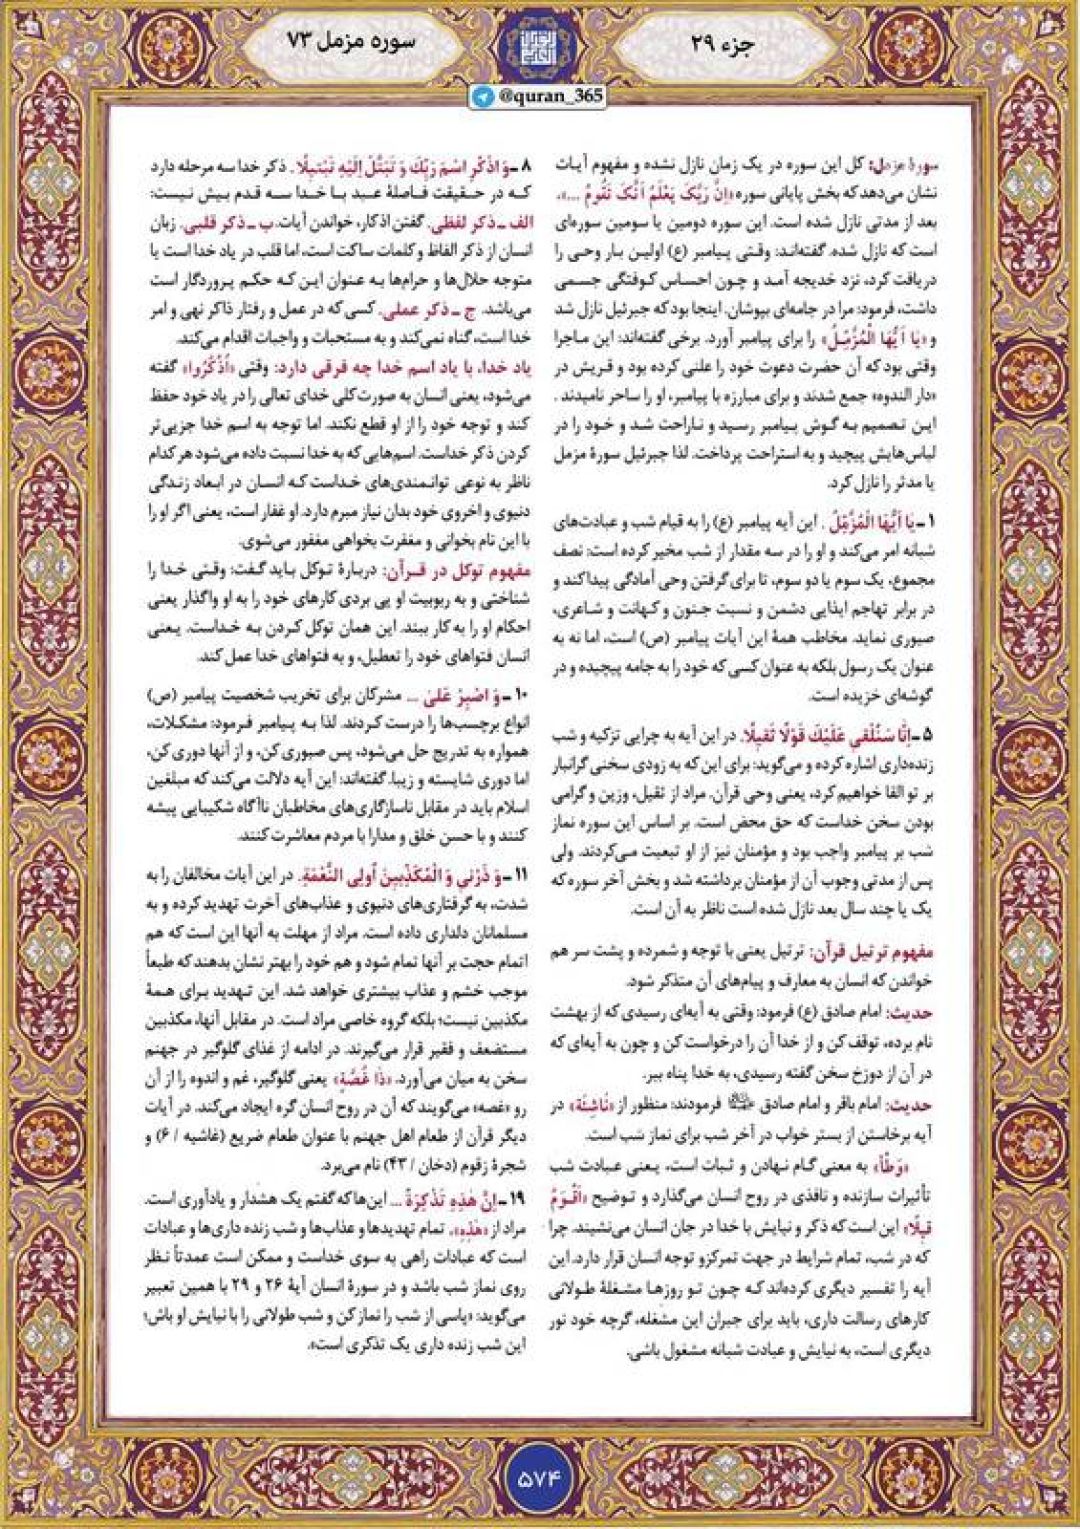 جزء ۲۹
سوره مزمل ۷۳
@quran_365
سورهٔ مزمل: کل این سوره در یک زمان نازل نشده و مفهوم آیات
نشان می‌دهد که بخش پایانی سوره «اِنَّ رَبَّکَ یَعْلَمُ اَنَّکَ تَقُومُ ...»،
بعد از مدتی نازل شده است. این سوره دومین یا سومین سوره‌ای
است که نازل شده. گفته‌اند: وقتی پیامبر (ع) اولین بار وحی را
دریافت کرد، نزد خدیجه آمد و چون احساس کوفتگی جسمی
داشت، فرمود: مرا در جامه‌ای بپوشان. اینجا بود که جبرئیل نازل شد
و «یَا اَیُّهَا الْمُزَّمِّلُ» را برای پیامبر آورد. برخی گفته‌اند: این ماجرا
وقتی بود که آن حضرت دعوت خود را علنی کرده بود و قریش در
«دار الندوه» جمع شدند و برای مبارزه با پیامبر، او را ساحر نامیدند .
این تصمیم به گوش پیامبر رسید و ناراحت شد و خود را در
لباس‌هایش پیچید و به استراحت پرداخت. لذا جبرئیل سورهٔ مزمل
یا مدثر را نازل کرد.
۱ - یَا اَیُّهَا الْمُزَّمِّلُ . این آیه پیامبر (ع) را به قیام شب و عبادت‌های
شبانه امر می‌کند و او را در سه مقدار از شب مخیر کرده است: نصف
مجموع، یک سوم یا دو سوم، تا برای گرفتن وحی آمادگی پیدا کند و
در برابر تهاجم ایذایی دشمن و نسبت جنون و کهانت و شاعری،
صبوری نماید. مخاطب همهٔ این آیات پیامبر (ص) است، اما نه به
عنوان یک رسول بلکه به عنوان کسی که خود را به جامه پیچیده و در
گوشه‌ای خزیده است.
۵ - اِنَّا سَنُلْقی عَلَیْکَ قَوْلًا ثَقیلًا. در این آیه به چرایی تزکیه و شب
زنده‌داری اشاره کرده و می‌گوید: برای این که به زودی سخنی گرانبار
بر تو القا خواهیم کرد، یعنی وحی قرآن. مراد از ثقیل، وزین و گرامی
بودن سخن خداست که حق محض است. بر اساس این سوره نماز
شب بر پیامبر واجب بود و مؤمنان نیز از او تبعیت می‌کردند. ولی
پس از مدتی وجوب آن از مؤمنان برداشته شد و بخش آخر سوره که
یک یا چند سال بعد نازل شده است ناظر به آن است.
مفهوم ترتیل قرآن: ترتیل یعنی با توجه و شمرده و پشت سر هم
خواندن که انسان به معارف و پیام‌های آن متذکر شود.
حدیث: امام صادق (ع) فرمود: وقتی به آیه‌ای رسیدی که از بهشت
نام برده، توقف کن و از خدا آن را درخواست کن و چون به آیه‌ای که
در آن از دوزخ سخن گفته رسیدی، به خدا پناه ببر.
حدیث: امام باقر و امام صادق علیهما السلام فرمودند: منظور از «نَاشِئَة» در
آیه برخاستن از بستر خواب در آخر شب برای نماز شب است.
«وَطْأ» به معنی گام نهادن و ثبات است، یعنی عبادت شب
تأثیرات سازنده و نافذی در روح انسان می‌گذارد و توضیح «اَقْوَمُ
قیلًا» این است که ذکر و نیایش با خدا در جان انسان می‌نشیند. چرا
که در شب، تمام شرایط در جهت تمرکزو توجه انسان قرار دارد. این
آیه را تفسیر دیگری کرده‌اند که چون تو روزها مشغلهٔ طولانی
کارهای رسالت داری، باید برای جبران این مشغله، گرچه خود نور
دیگری است، به نیایش و عبادت شبانه مشغول باشی.
۸ - وَ اذْکُرِ اسْمَ رَبِّکَ وَ تَبَتَّلْ اِلَیْهِ تَبْتیلًا. ذکر خدا سه مرحله دارد
که در حقیقت فاصلهٔ عبد با خدا سه قدم بیش نیست:
الف - ذکر لفظی. گفتن اذکار، خواندن آیات. ب - ذکر قلبی. زبان
انسان از ذکر الفاظ و کلمات ساکت است، اما قلب در یاد خدا است یا
متوجه حلال‌ها و حرام‌ها به عنوان این که حکم پروردگار است
می‌باشد. ج - ذکر عملی. کسی که در عمل و رفتار ذاکر نهی و امر
خدا است، گناه نمی‌کند و به مستحبات و واجبات اقدام می‌کند.
یاد خدا، با یاد اسم خدا چه فرقی دارد: وقتی «اُذْکُرُوا» گفته
می‌شود، یعنی انسان به صورت کلی خدای تعالی را در یاد خود حفظ
کند و توجه خود را از او قطع نکند. اما توجه به اسم خدا جزیی‌تر
کردن ذکر خداست. اسم‌هایی که به خدا نسبت داده می‌شود هر کدام
ناظر به نوعی توانمندی‌های خداست که انسان در ابعاد زندگی
دنیوی و اخروی خود بدان نیاز مبرم دارد. او غفار است، یعنی اگر او را
با این نام بخوانی و مغفرت بخواهی مغفور می‌شوی.
مفهوم توکل در قرآن: دربارهٔ توکل باید گفت: وقتی خدا را
شناختی و به ربوبیت او پی بردی کارهای خود را به او واگذار یعنی
احکام او را به کار ببند. این همان توکل کردن به خداست. یعنی
انسان فتواهای خود را تعطیل، و به فتواهای خدا عمل کند.
۱۰ - وَ اصْبِرْ عَلیٰ ... مشرکان برای تخریب شخصیت پیامبر (ص)
انواع برچسب‌ها را درست کردند. لذا به پیامبر فرمود: مشکلات،
همواره به تدریج حل می‌شود، پس صبوری کن، و از آنها دوری کن،
اما دوری شایسته و زیبا. گفته‌اند: این آیه دلالت می‌کند که مبلغین
اسلام باید در مقابل ناسازگاری‌های مخاطبان ناآگاه شکیبایی پیشه
کنند و با حسن خلق و مدارا با مردم معاشرت کنند.
۱۱ - وَ ذَرْنی وَ الْمُکَذِّبینَ اُولِی النَّعْمَةِ. در این آیات مخالفان را به
شدت، به گرفتاری‌های دنیوی و عذاب‌های آخرت تهدید کرده و به
مسلمانان دلداری داده است. مراد از مهلت به آنها این است که هم
اتمام حجت بر آنها تمام شود و هم خود را بهتر نشان بدهند که طبعاً
موجب خشم و عذاب بیشتری خواهد شد. این تهدید برای همهٔ
مکذبین نیست؛ بلکه گروه خاصی مراد است. در مقابل آنها، مکذبین
مستضعف و فقیر قرار می‌گیرند. در ادامه از غذای گلوگیر در جهنم
سخن به میان می‌آورد. «ذَا غُصَّةٍ» یعنی گلوگیر، غم و اندوه را از آن
رو «غصه» می‌گویند که آن در روح انسان گره ایجاد می‌کند. در آیات
دیگر قرآن از طعام اهل جهنم با عنوان طعام ضریع (غاشیه / ۶) و
شجرهٔ زقوم (دخان / ۴۳) نام می‌برد.
۱۹ - اِنَّ هٰذِهِ تَذْکِرَةٌ ... این‌ها که گفتم یک هشدار و یادآوری است.
مراد از «هٰذِهِ»، تمام تهدیدها و عذاب‌ها و شب زنده داری‌ها و عبادات
است که عبادات راهی به سوی خداست و ممکن است عمدتاً نظر
روی نماز شب باشد و در سورهٔ انسان آیهٔ ۲۶ و ۲۹ با همین تعبیر
می‌گوید: «پاسی از شب را نماز کن و شب طولانی را با نیایش او باش؛
این شب زنده داری یک تذکری است».
۵۷۴